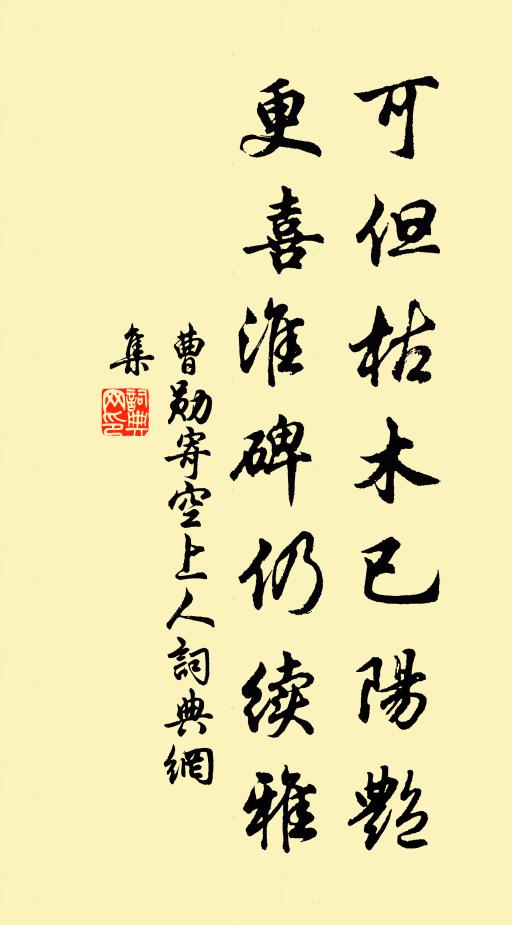 可但枯木已陽艷
更喜淮碑仍续雅
曹勛寄空上人詞典網
集
詞典网印